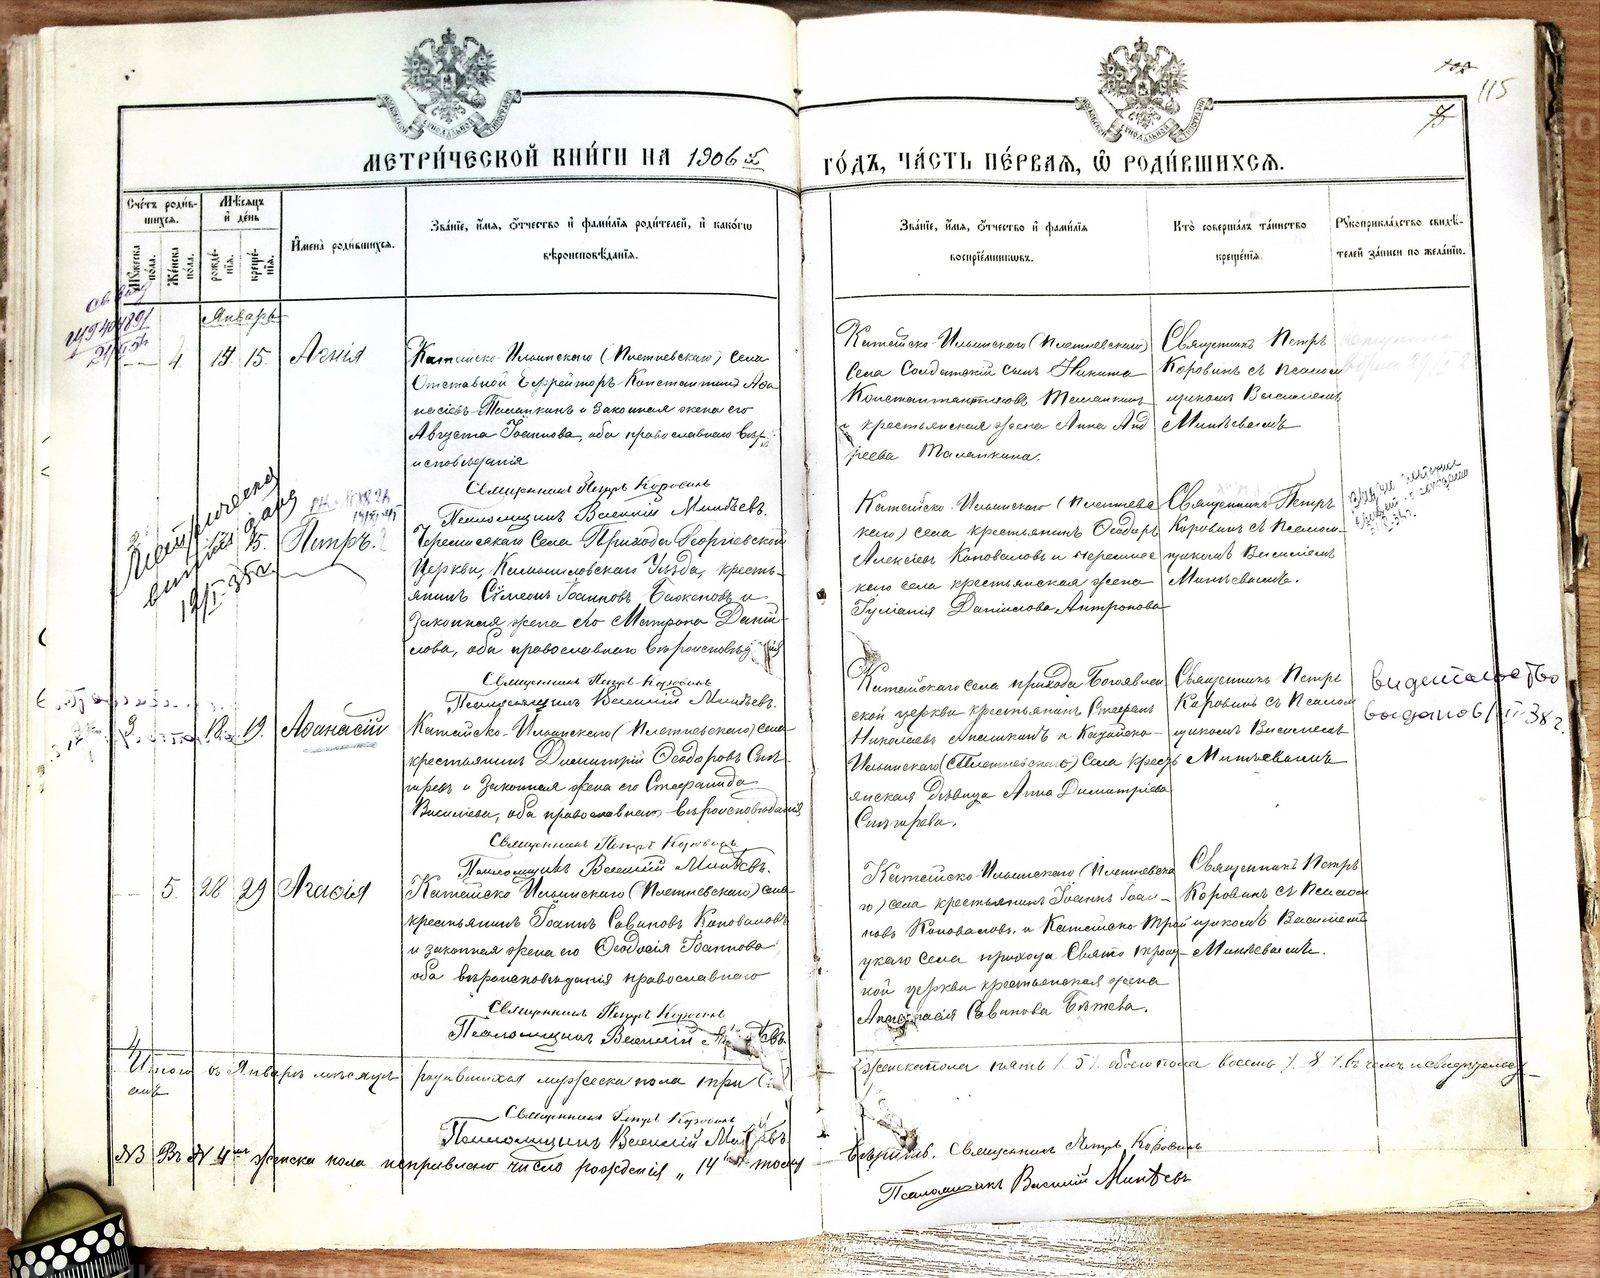 115
МЕТРИ́ЧЕСКОЙ КНИ́ГИ НА 1906 й ГО́ДЪ, ЧА́СТЬ ПЕ́РВАЯ, Ѡ РОДИ́ВШИХСѦ.
Сче́тъ роди́в-
шихся.
Мѣ́сяцъ
и́ де́нь
Му́жеска
по́ла.
Же́нска
по́ла.
рожде́-
нія.
креще́-
нія.
И҆мена̀ роди́вшихся.
Зва́ніе, и҆́мя, ѻ҆́тчество и҆ фами́лія роди́телей, и҆ како́гѡ
вѣроисповѣ́данія.
Зва́ніе, и҆́мя, ѻ҆́тчество и҆ фами́лія
воспріе́мниковъ.
Кто̀ соверша́лъ та́инство
креще́нія.
Рукоприкла́дство свидѣ́-
телей за́писи по жела́нію.
Январь
4 14 15. Агнія
Катайско-Ильинскаго (Плетневскаго) села
Отставной Ефрейторъ Константинъ Афа
насіевъ Талапкинъ и законная жена его
Августа Іоаннова, оба православнаго вѣро
исповѣданія
Священникъ Петръ Коровинъ
Псаломщикъ Василій Минѣевъ.
Катайско-Ильинскаго (Плетневскаго)
села Солдатскій сынъ Никита
Константиновъ Талапкинъ
и крестьянская жена Анна Анд
реева Талапкина.
Священникъ Петръ
Коровинъ съ псалом
щикомъ Василіемъ
Минѣевымъ
Метрическая
выпись дана
19/I 35 г.
15. Петръ.
Села Прихода Георгіевской
Церкви, Камышловскаго Уѣзда, кресть-
янинъ Сѵмеонъ Іоанновъ Баженовъ и
законная жена его Матрона Дані-
лова, оба православнаго вѣроисповѣданія
Священникъ Петръ Коровинъ
Псаломщикъ Василій Минѣевъ.
Катайско-Ильинскаго (Плетневс
каго) села крестьянинъ Ѳеодоръ
Алексіевъ Коноваловъ и
каго села крестьянская жена
Іуліанія Даніилова Антропова
Священникъ Петръ
Коровинъ съ псалом-
щикомъ Василіемъ
Минѣевымъ.
3 18 19. Аѳанасій
Катайско-Ильинскаго (Плетневскаго) села
крестьянинъ Димитрій Ѳеодоровъ Снѣ-
гиревъ и законная жена его Стефанида
Василіева, оба православнаго вѣроисповѣданія
Священникъ Петръ Коровинъ
Псаломщикъ Василій Минѣевъ.
Катайскаго села прихода Богоявлен
ской церкви крестьянинъ Стефанъ
Николаевъ и Катайско-
Ильинскаго (Плетневскаго) села кресть
янская дѣвица Анна Димитріева
Снѣгирева.
Священникъ Петръ
Коровинъ съ псалом
щикомъ Василіемъ
Минѣевымъ
видетельство
выдано 6/II 38 г.
5. 28 29 Агафія
Катайско Ильинскаго (Плетневскаго) села
крестьянинъ Іоаннъ Савиновъ Коноваловъ
и законная жена его Ѳеодосія Іоаннова
оба вѣроисповѣданія православнаго
Священникъ Петръ Коровинъ
Псаломщикъ Василій Минѣевъ
Катайско-Ильинскаго (Плетневска
го) села крестьянинъ Іоаннъ Іоан-
новъ Коноваловъ и Катайско-Трои
цкаго села прихода Свято Троиц-
кой церкви крестьянская жена
Анастасія Савинова Бѣтева.
Священникъ Петръ
Коровинъ съ псалом
щикомъ Василіемъ
Минѣевымъ.
Итого въ Январѣ мѣсяцѣ родившихся мужеска пола три женска пола пять (5) обоего пола восемь (8), въ чемъ и свидѣтельству-
емъ
Священникъ Петръ Коровинъ
Псаломщикъ Василій Минѣевъ
NB Въ № 4мъ женска пола исправлено число рожденія „14“ тому вѣрить. Священникъ Петръ Коровинъ
Псаломщикъ Василій Минѣевъ